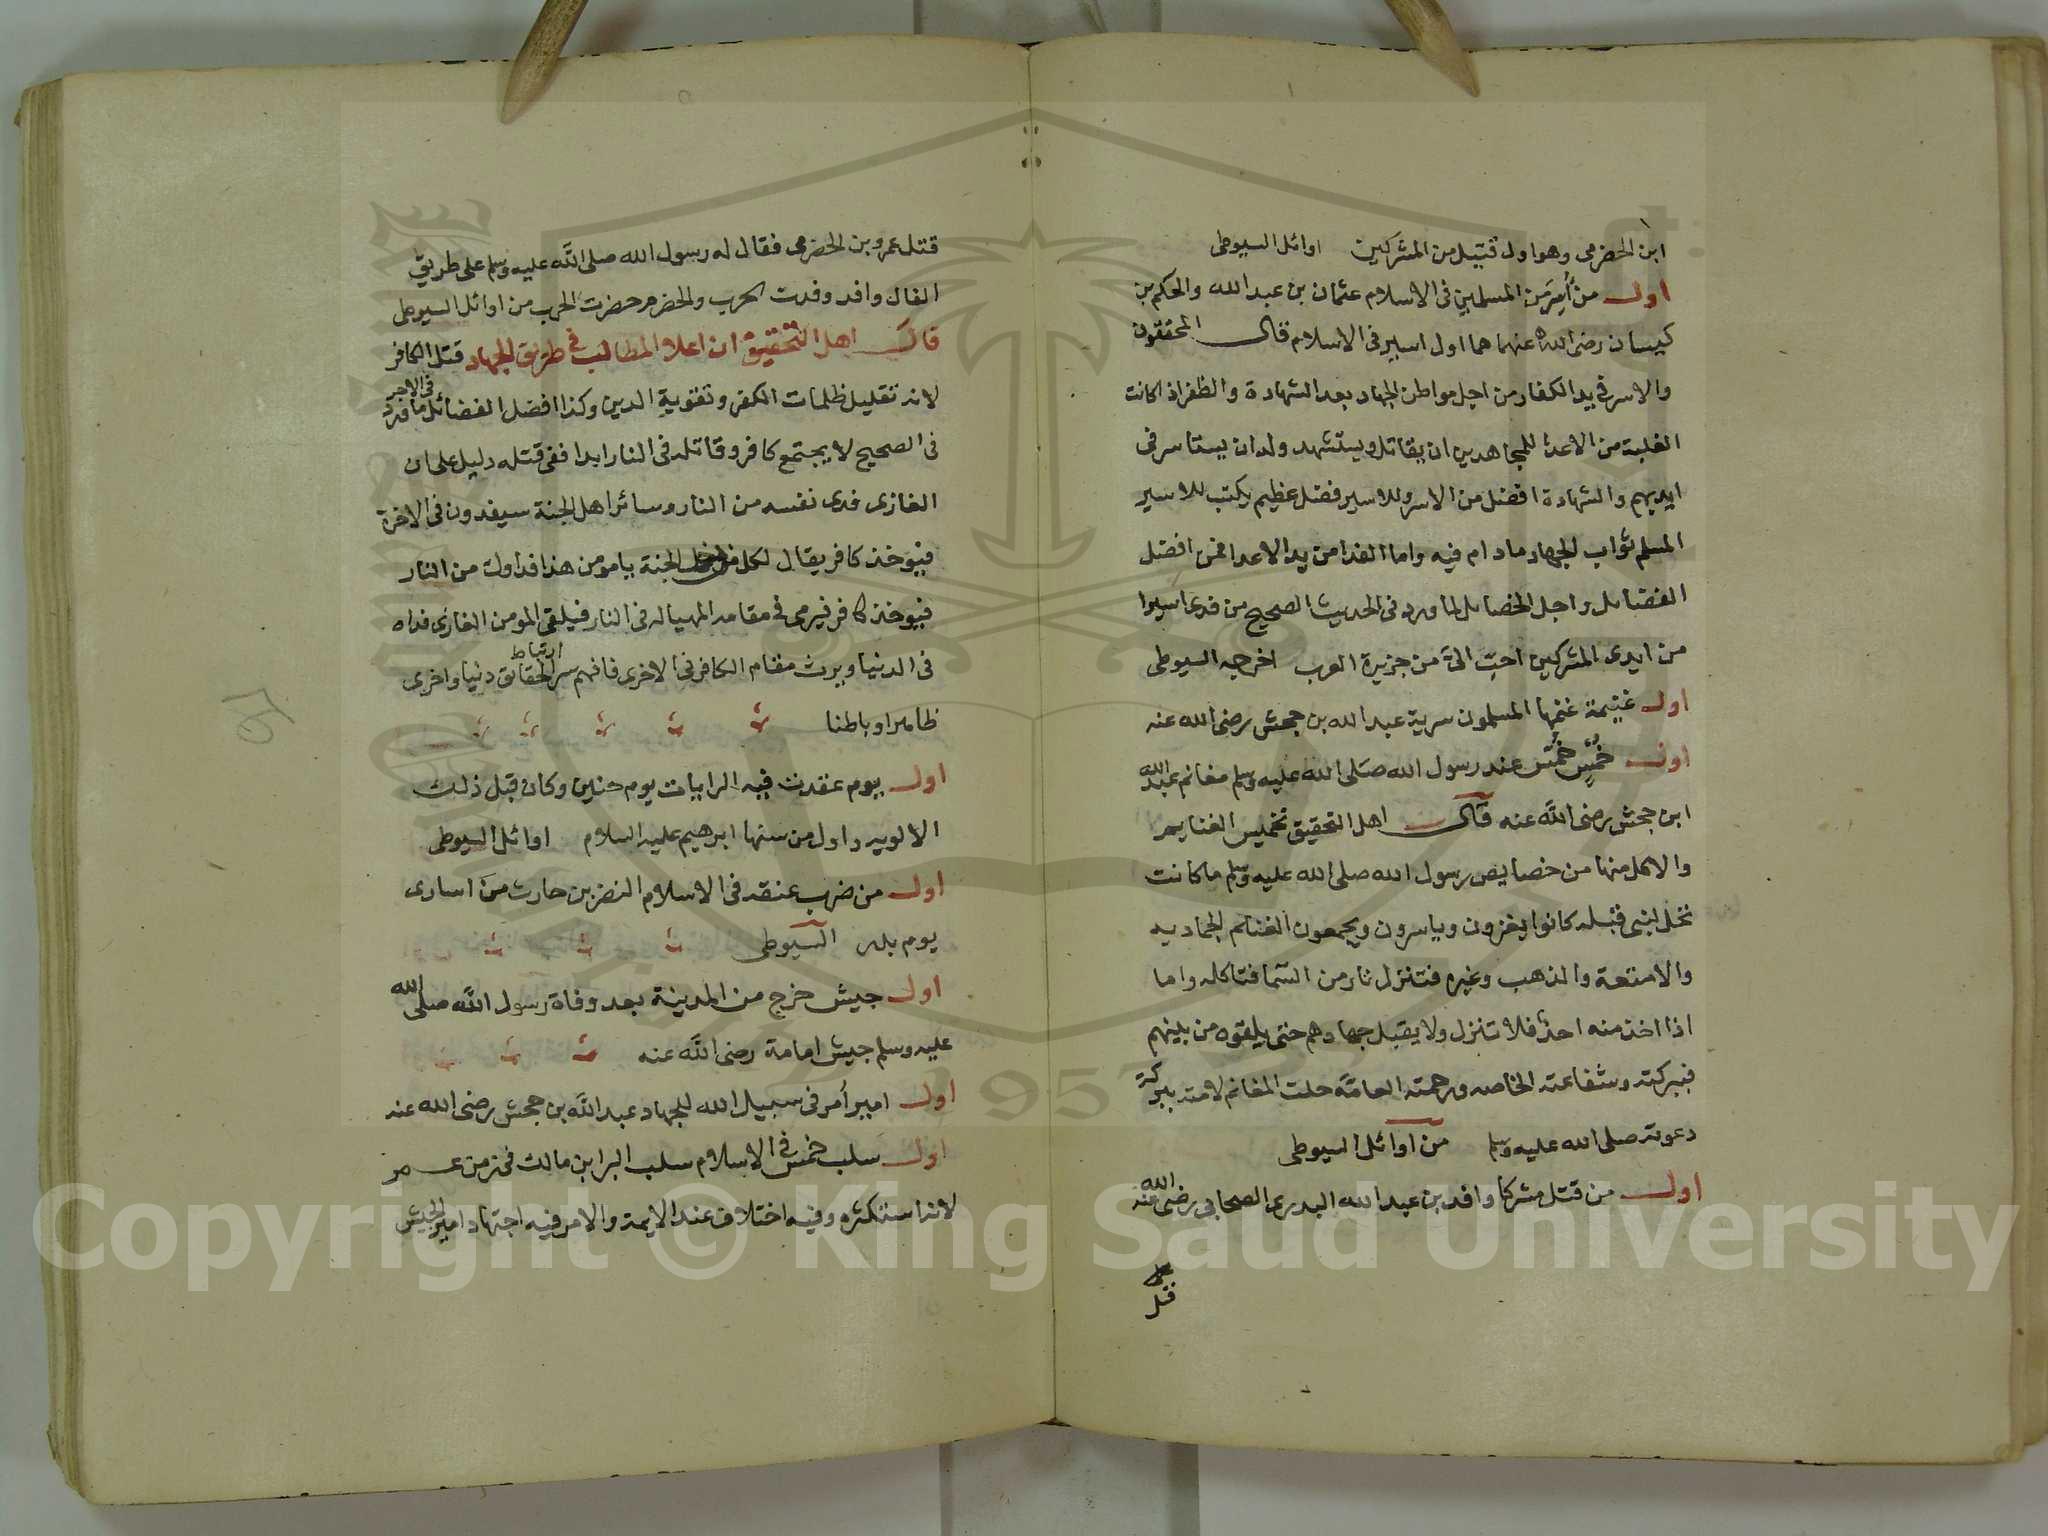 ابن الحضرمى وهو اول قتيل من المشركين اوائل السيوطى
اول من أُسِرَ من المسلمين فى الاسلام عثمان بن عبد الله والحكم بن
كيسان رضى الله عنهما هما اول اسير فى الاسلام قال المحققون
والاسر فى يد الكفار من اجل مواطن الجهاد بعد الشهادة والظفر اذا كانت
الغلبة من الاعدا للمجاهدين ان يقاتل ويستشهد وله ان يستاسر فى
ايديهم والشهادة افضل من الاسر وللاسير فضل عظيم يكتب للاسير
المسلم ثواب الجهاد ما دام فيه واما الفدا من يد الاعدا فمن افضل
الفضائل واجل الخصائل لما ورد فى الحديث الصحيح من فدى اسيرا
من ايدى المشركين احبّ الىّ من جزيرة العرب اخرجه السيوطى
اول غنيمة غنمها المسلمون سرية عبد الله بن جحش رضى الله عنه
اول خُمُسٍ خُمّس عند رسول الله صلى الله عليه وسلم مغانم عبد الله
ابن جحش رضى الله عنه قال اهل التحقيق تخميس الغنايم
والاكل منها من خصايص رسول الله صلى الله عليه وسلم ما كانت
تحل لنبى قبله كانوا يغزون وياسرون ويجمعون الغنائم الجماديه
والامتعة والذهب وغيره فتنزل نار من السما فتاكله واما
اذا اخذ منه احدٌ فلا تنزل ولا يقبل جهادهم حتى يلقوه من بينهم
فببركته وشفاعته الخاصه ورحمته العامّه حلت المغانم لامته ببركة
دعوته صلى الله عليه وسلم من اوائل السيوطى
اول من قتل مشركا واقد بن عبد الله البدرى الصحابى رضى الله عنه
قتل
قتل عمرو بن الحضرمى فقال له رسول الله صلى الله عليه وسلم على طريق
الفال واقد وقدت الحرب والحضرمى حضرت الحرب من اوائل السيوطى
قال اهل التحقيق ان اعلا المطالب فى طريق الجهاد قتل الكافر
لانه تقليل ظلمات الكفر وتقوية الدين وكذا افضل الفضائل فى الاجر ما ورد
فى الصحيح لا يجتمع كافر وقاتله فى النار ابدا ففى قتله دليل على ان
الغازى فدى نفسه من النار وسائر اهل الجنة سيفدون فى الاخرة
فيؤخذ كافر يقال لكل من الجنة يا مومن هذا فداوك من النار
فيوخذ كافر فيرمى فى مقامه المهيا له فى النار فيلقى المومن الغازى فداه
فى الدنيا ويرث مقام الكافر فى الاخرى فافهم سر ارتباط الحقائق دنيا واخرى
ظاهرا وباطنا
اول يوم عقدت فيه الرايات يوم حنين وكان قبل ذلك
الالويه واول من سنها ابرهيم عليه السلام اوائل السيوطى
اول من ضرب عنقه فى الاسلام النضر بن حارث من اسارى
يوم بدر السيوطى
اول جيش خرج من المدينة بعد وفاة رسول الله صلى الله
عليه وسلم جيش امامة رضى الله عنه
اول امير أمر فى سبيل الله للجهاد عبد الله بن جحش رضى الله عنه
اول سلب خمس فى الاسلام سلب البرا بن مالك فى زمن عمر
لانه استكثره وفيه اختلاف عند الايمة والامر فيه اجتهاد امير الجيش
Copyright © King Saud University
1957